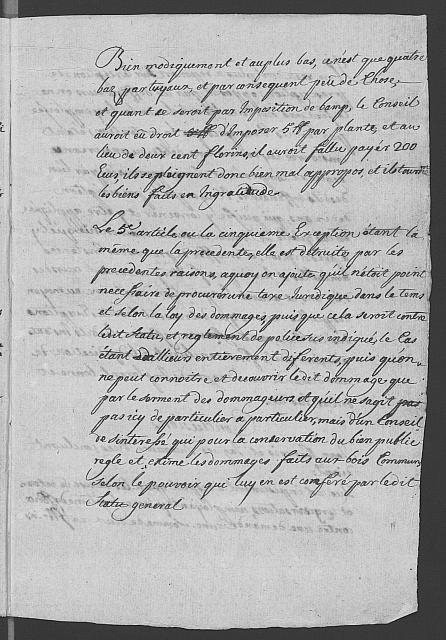 Bien modiquement et au plus bas, ce n'est que quatre
baz par tuyaux, et par consequent peu de Chose,
et quant ce seroit par Imposition de bamp, le Conseil
auroit eu droit d'Imposer 5 ff par plante, et au
lieu de deux cent florins, il auroit fallu payer 200
Eus, ils se pleignent donc bien mal appropos, et ils
les biens faits en Ingratitude.
Le 5e article ou la cinquieme Exception étant la
même que la precedente, elle est detruite par les
precedentes raisons, a quoy on ajoute qu'il n'étoit point
necessaire de procurer une taxe Juridique dans le tems
et selon la loy des dommages, puis que cela seroit contre
ledit Statu, et reglement de police sus indiqué, le Cas
étant d'allieurs entierement diferents, puis qu'on
ne peut connoitre et decouvrir ledit dommage que
par le serment des dommageurs et qu'il ne s'agit pas
pas icy de particulier a particulier, mais d'un Conseil
qui pour la conservation du bien public
regle et éxime les dommages faits aux bois Commun
selon le pouvoir qui luy en est conferé par ledit
Statu general